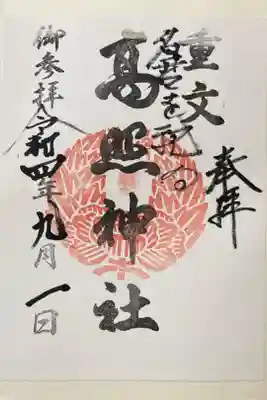 奉拝
重文
名君を祀る
高照神社
御参拝 令和四年九月一日